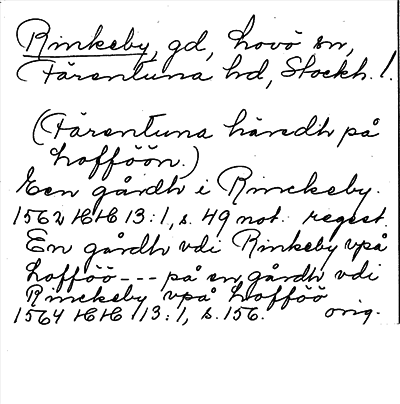 Rinkeby, gd, Lovö sn,
Färentuna hd, Stockh. l.
(Färentuna häredh på
Lofföön.)
Een gårdh i Rinckeby.
1562 HH 13:1, s. 49 not. regest.
En gårdh vdi Rinkeby vpå
Lofföö --- på en gårdh vdi
Rinckeby vpå Lofföö
1564 HH 13:1, s. 156. orig.